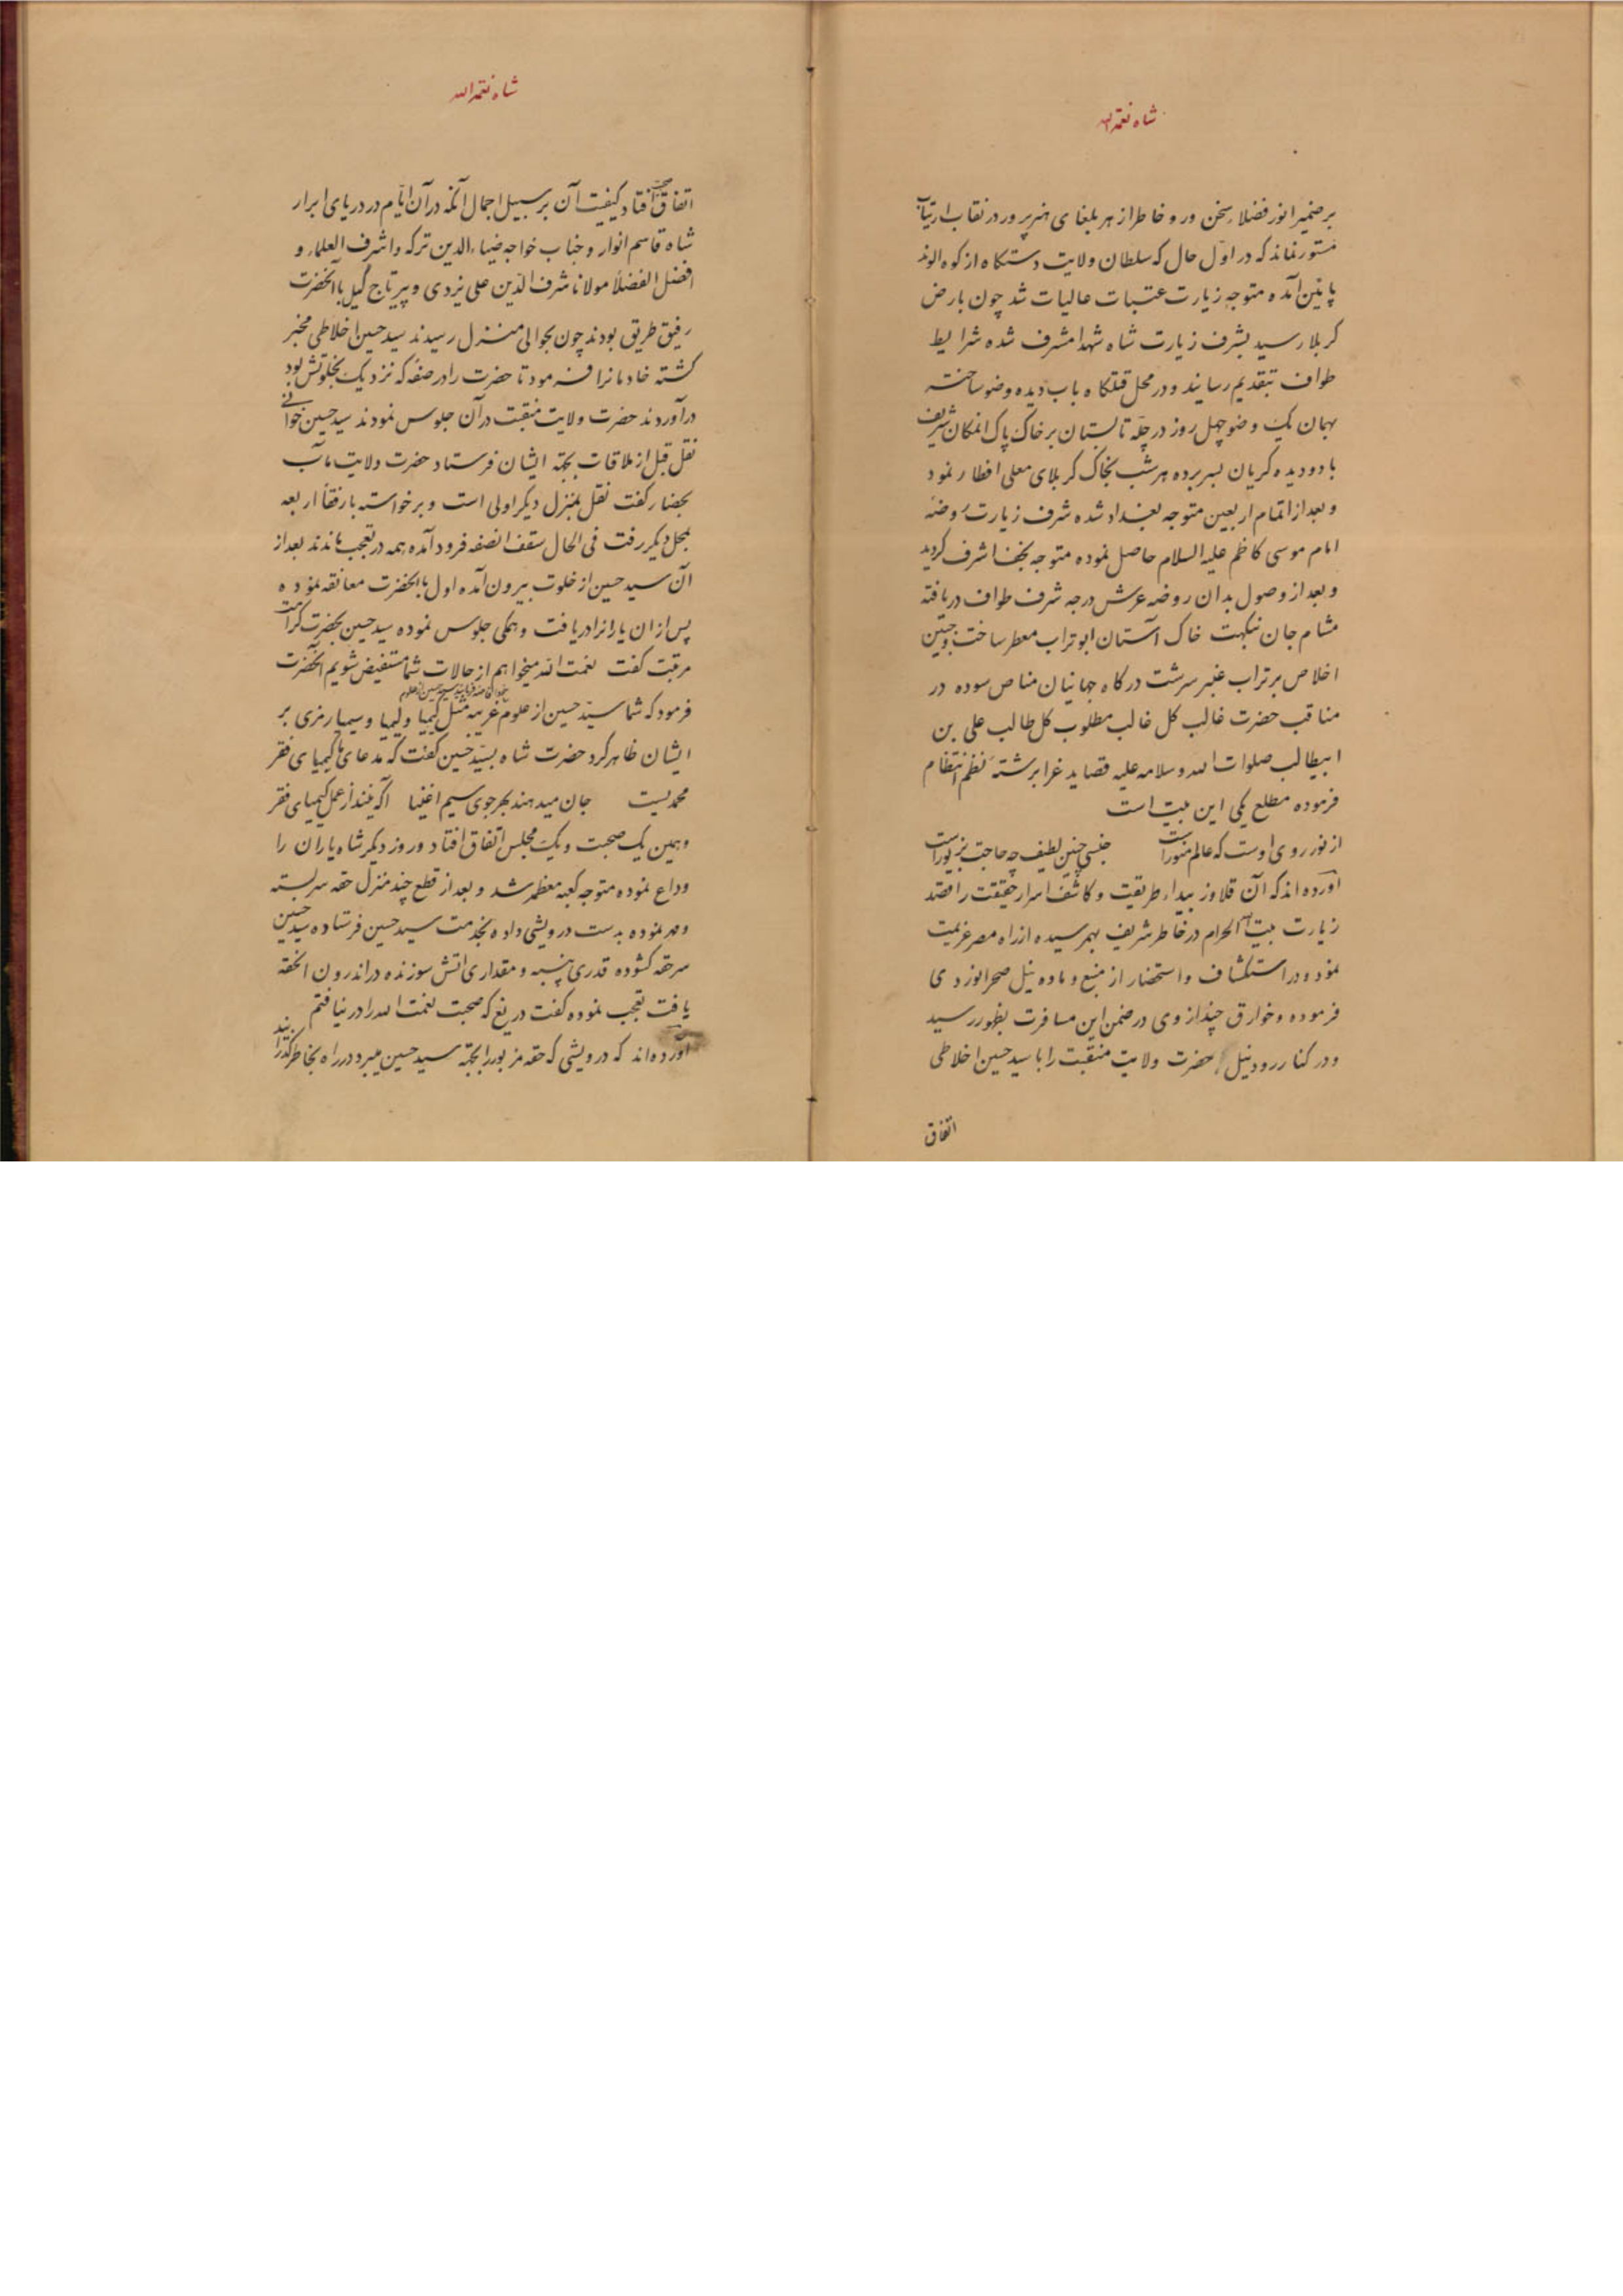 شاه نعمة الله
بر ضمیر انور فضلاء سخن ور و خاطر ازهر بلغای هنرپرور در نقاب ارتیاب
مستور نماند که در اوّل حال که سلطان ولایت دستکاه از کوه الوند
پایین آمده متوجه زیارت عتبات عالیات شد چون بارض
کربلا رسید بشرف زیارت شاه شهدا مشرف شده شرایط
طواف بتقدیم رسانید و در محل قتلکاه باب دیده وضو ساخته
بهمان یک وضو چهل روز در چلّه تابستان بر خاک پاک انمکان شریف
با دو دیده کریان بسر برده هر شب بخاک کربلای معلی افطار نمود
و بعد از اتمام اربعین متوجه بغداد شده شرف زیارت روضه
امام موسی کاظم علیه السلام حاصل نموده متوجه نجف اشرف کردید
و بعد از وصول بدان روضه عرش درجه شرف طواف دریافته
مشام جان بنکهت خاک آستان ابو تراب معطر ساخت و جبین
اخلاص بر تراب عنبر سرشت درکاه جهانیان مناص سوده در
مناقب حضرت غالب کل غالب مطلوب کل طالب علی بن
ابیطالب صلوات الله و سلامه علیه قصاید غرا برشته نظم انتظام
فرموده مطلع یکی این بیت است
از نور روی اوست که عالم منور است حسنی چنین لطیف چه حاجت بزیور است
آورده اند که آن قلاوز بیداء طریقت و کاشف اسرار حقیقت را قصد
زیارت بیت الله الحرام در خاطر شریف بهمرسیده از راه مصر عزیمت
نمود و در استکشاف و استحضار از منبع و ماده نیل صحرا نوردی
فرموده و خوارق چند از وی در ضمن این مسافرت بظهور رسید
و در کنار رود نیل حضرت ولایت منقبت را با سید حسین اخلاطی
اتفاق
شاه نعمة الله
اتفاق صحبت افتاد کیفیت آن بر سبیل اجمال آنکه در آن ایّام در دریای ابرار
شاه قاسم انوار و جناب خواجه ضیاء الدین ترکه و اشرف العلماء و
افضل الفضلا مولانا شرف الدّین علی یزدی و پیر تاج کیل با آنحضرت
رفیق طریق بودند چون بحوالی منزل رسیدند سید حسین اخلاطی مخبر
کشته خادمانرا فرمود تا حضرت را در صفه که نزدیک بخلوتش بود
درآوردند حضرت ولایت منقبت در آن جلوس نمودند سید حسین خوانی
نقل قبل از ملاقات بجهة ایشان فرستاد حضرت ولایت مآب
بحضار کفت نقل بمنزل دیکر اولی است و برخواسته با رفقا اربعه
بمحل دیکر رفت فی الحال سقف انصفه فرود آمده همه در تعجب ماندند بعد از
آن سید حسین از خلوت بیرون آمده اول با انحضرت معانقه نموده
پس از ان یارانرا دریافت و همکی جلوس نموده سید حسین بحضرت کرامت
مرتبت کفت نعمت الله میخواهم از حالات شما مستفیض شویم آنحضرت
فرمود که شما سیّد حسین از علوم غریبه مثل کیمیا و لیمیا و سیمیا رمزی بر
ایشان ظاهر کرد حضرت شاه بسیّد حسین کفت که مدعای ما کیمیای فقر
محمدیست جان میدهند بهر جوی سیم اغنیا آکه نیند از عمل کیمیای فقر
و همین یک صحبت و یک مجلس اتفاق افتاد و روز دیکر شاه یاران را
وداع نموده متوجه کعبه معظمه شد و بعد از قطع چند منزل حقه سربسته
و مهر نموده بدست درویشی داده بخدمت سید حسین فرستاده سید حسین
سر حقه کشوده قدری پنبه و مقداری اتش سوزنده در اندرون الحقه
یافت تعجب نموده کفت دریغ که صحبت نعمت الله را در نیافتم
آورده‌اند که درویشی که حقه مزبور را بجهة سید حسین میبرد در راه بخاطر کذرانید